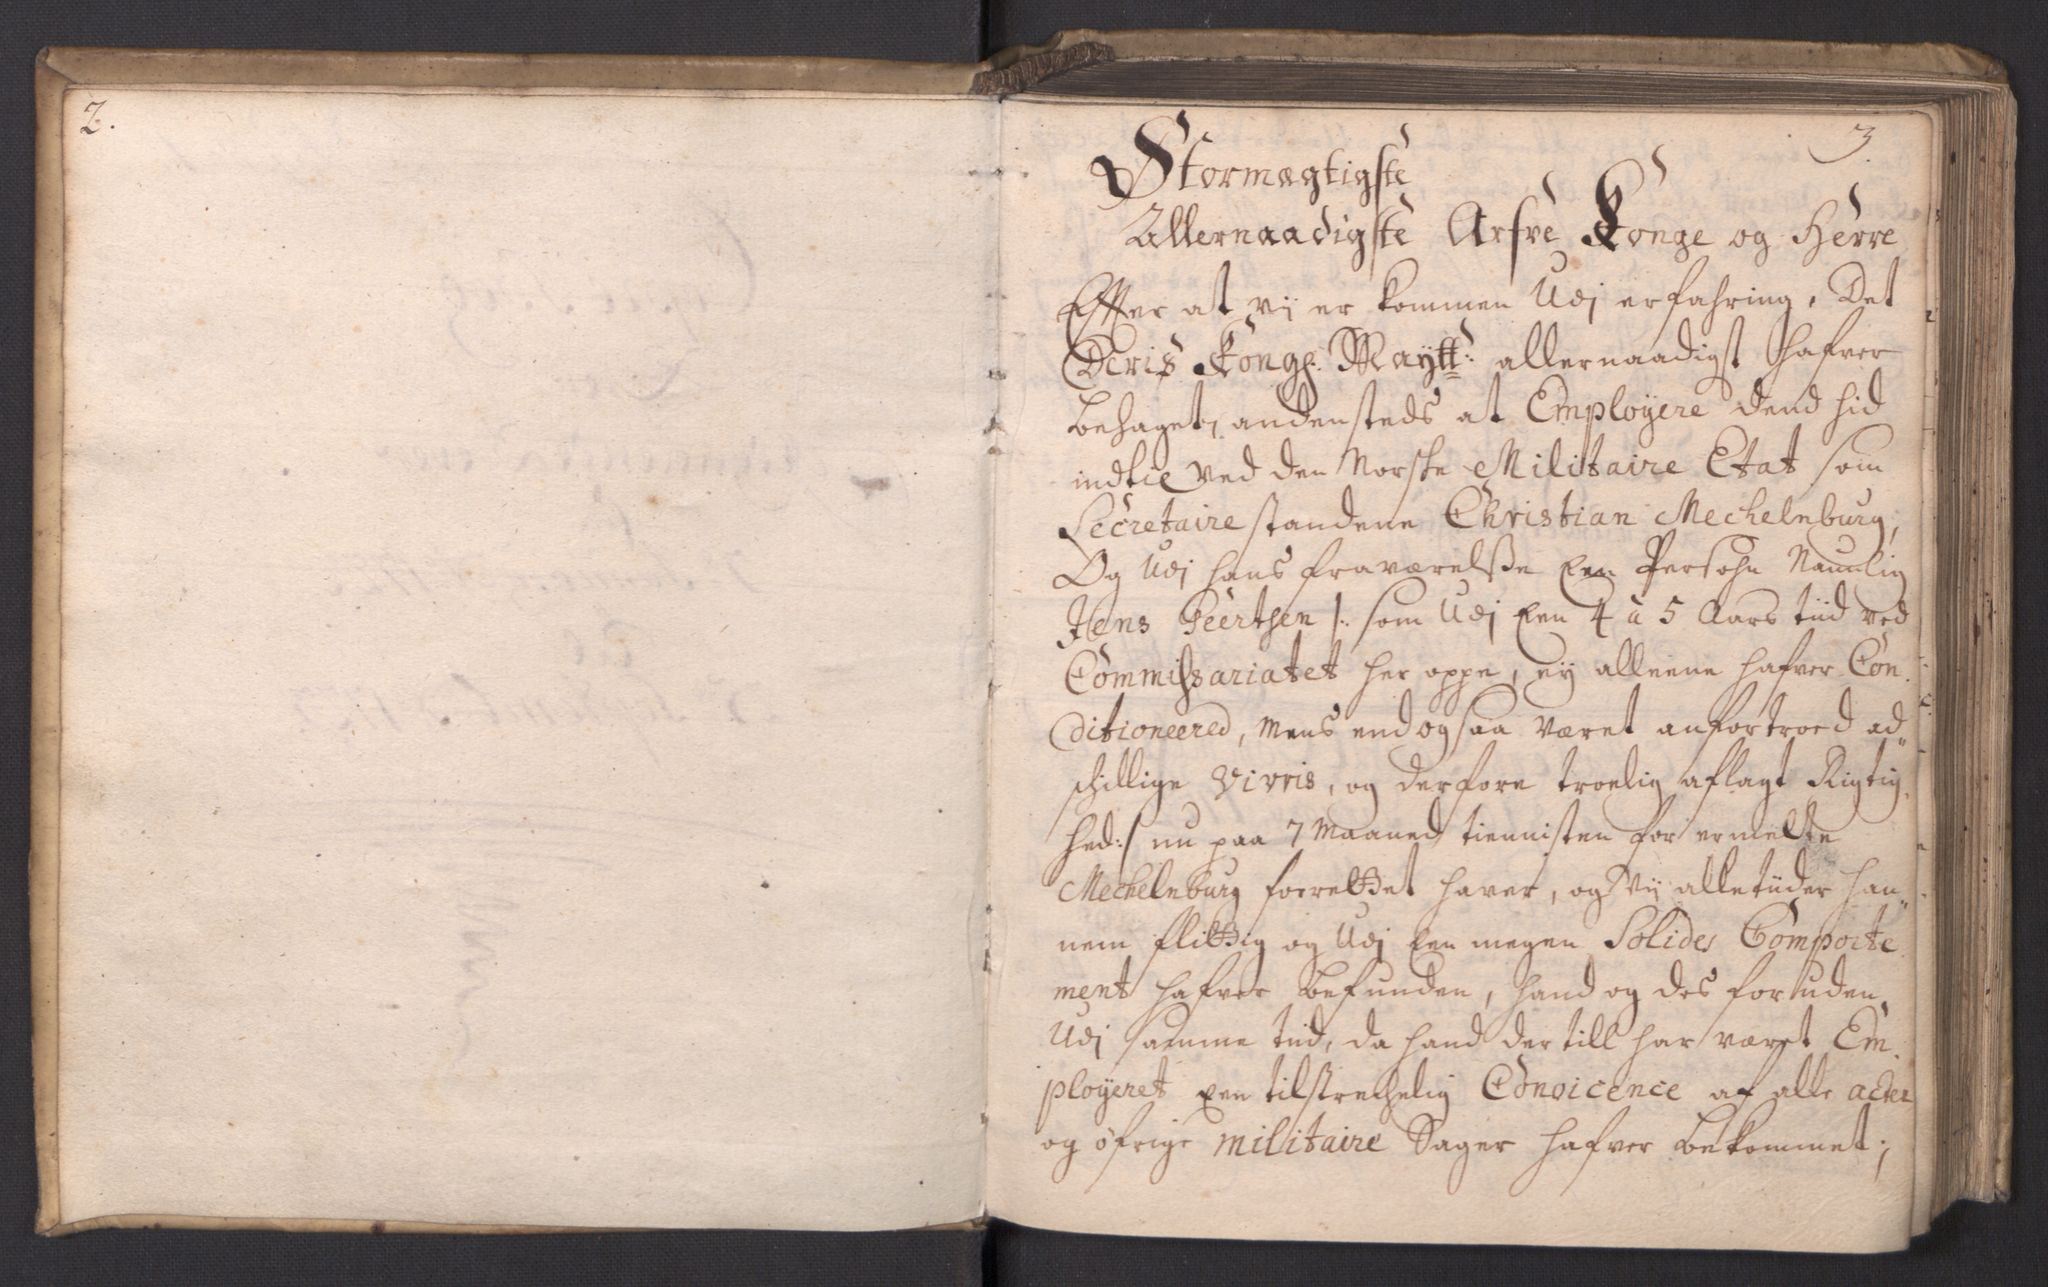 2.
3.
Stormægtigste
Allernaadigste Arfve Konge og Herre
Efter at vij er kommen Udj erfahring, Det
Deris Kongl. Maÿtt: allernaadigst hafver
behaget, andensteds at Employere dend hid
indtil ved den Norske Militaire Etat som
Secretaire standene Christian Mechelnburg,
Og Udj hans fraværelsße Een Persohn Naunlig
Jens Peersen /: som Udj Een 4 a 5 Aars tiid ved
Commissariatet her oppe, ey alleene hafver Con,
ditioneered, mens end og saa været anfortroed ad„
schillige Vivris, og derfore troelig aflagt Rigtig,
hed:/ nu paa 7 Maaned tiennisten for ermelte
Mechelnburg foerettet haver, og Vij alletiider han„
nem flittig og Udj Een megen Solides Comporte
ment hafver befunden, hand og des foruden,
Udj samme tiid, da hand der till har været Em,
ployeret Een tilstrechelig Conoicence af alle acter
og øfrige militaire Sager hafver bekommet;